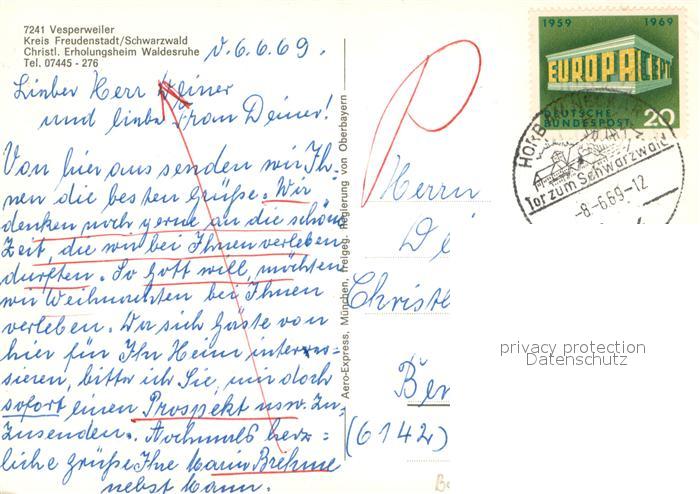 7241 Vesperweiler
Kreis Freudenstadt/Schwarzwald
Christl. Erholungsheim Waldesruhe
Tel. 07445 - 276
d. 6.6.69.
Lieber Herr Deiner
und liebe Frau Deiner!
Von hier aus senden wir Ih-
nen die besten Grüße. Wir
denken noch gerne an die schöne
Zeit, die wir bei Ihnen verleben
durften. So Gott will, möchten
wir Weihnachten bei Ihnen
verleben. Da sich Gäste von
hier für Ihr Heim interes-
sieren, bitte ich Sie, mir doch
sofort einen Prospekt usw. Zu-
zusenden. Nochmals herz=
liche Grüße Ihre Marin Brehme
nebst Mann.
Aero-Express, München, freigeg. Regierung von Oberbayern
P
Herrn
De
Christl
Ben
(6142)
1959 1969
EUROPA CEPT
DEUTSCHE
BUNDESPOST 20
HORB
Tor zum Schwarzwald
-8.-6.69-12
privacy protection
Datenschutz